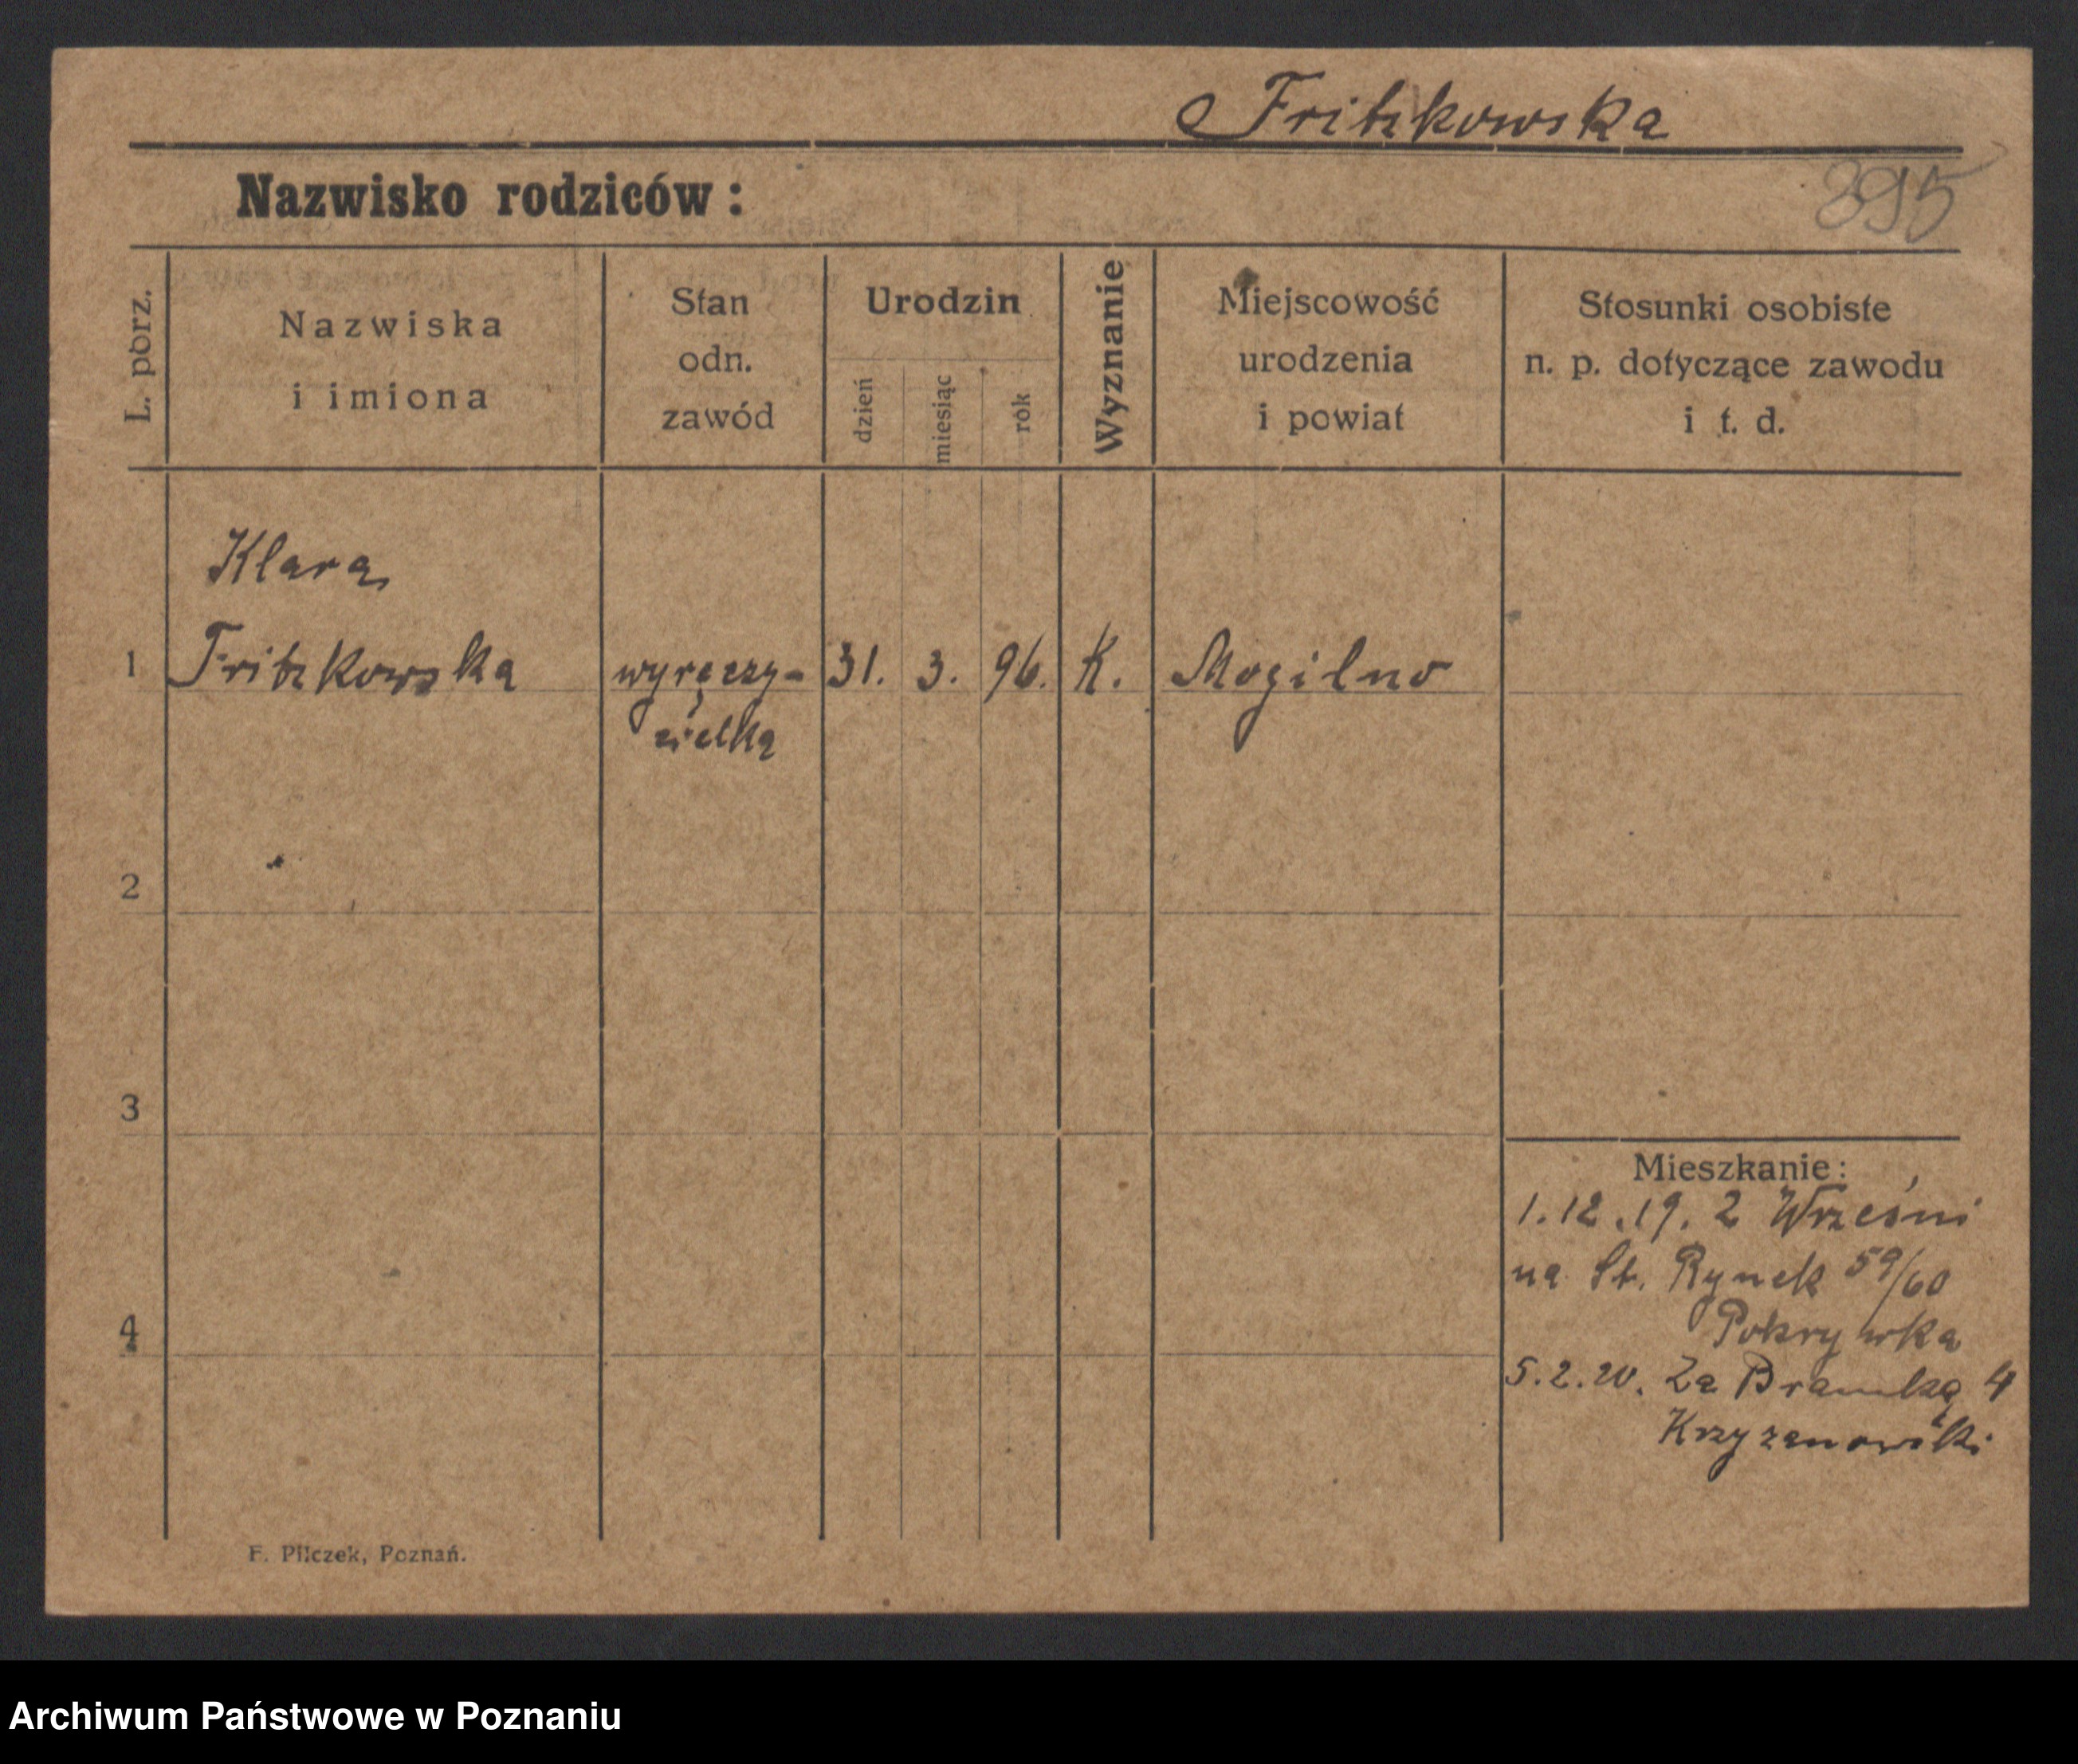 Fritzkowska
Nazwisko rodziców:
395
L. porz.
Nazwiska
i imiona
Stan
odn.
zawód
Urodzin
dzień
miesiąc
rok
Wyznanie
Miejscowość
urodzenia
i powiat
Stosunki osobiste
n. p. dotyczące zawodu
i t. d.
Klara
1 Fritzkowska wyręczy- 31. 3. 96. K. Mogilno
cielka
2
3
4
Mieszkanie:
1.12.19. z Wrześni
na St. Rynek 59/60
Pokrywka
5.2.20. Za Bramką 4
Krzyzanowski
F. Pilczek, Poznań.
Archiwum Państwowe w Poznaniu